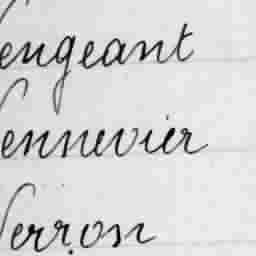 Vengeant
Vennevier
Verron